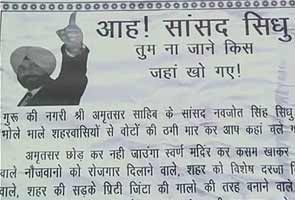 आह! सांसद सिधु
तुम ना जाने किस
जहां खो गए!
गुरू की नगरी श्री अमृतसर साहिब के सांसद नवजोत सिंह सिधु
भोले भाले शहरवासियों से वोटों की ठगी मार कर आप कहां चले ग
अमृतसर छोड़ कर नहीं जाउंगा स्वर्ण मंदिर कर कसम खाकर
वाले नौजवानो को रोजगार दिलाने वाले, शहर को विशेष दरजा दि
वाले, शहर की सड़के प्रिटी जिंटा की गालो की तरह बनाने वाले